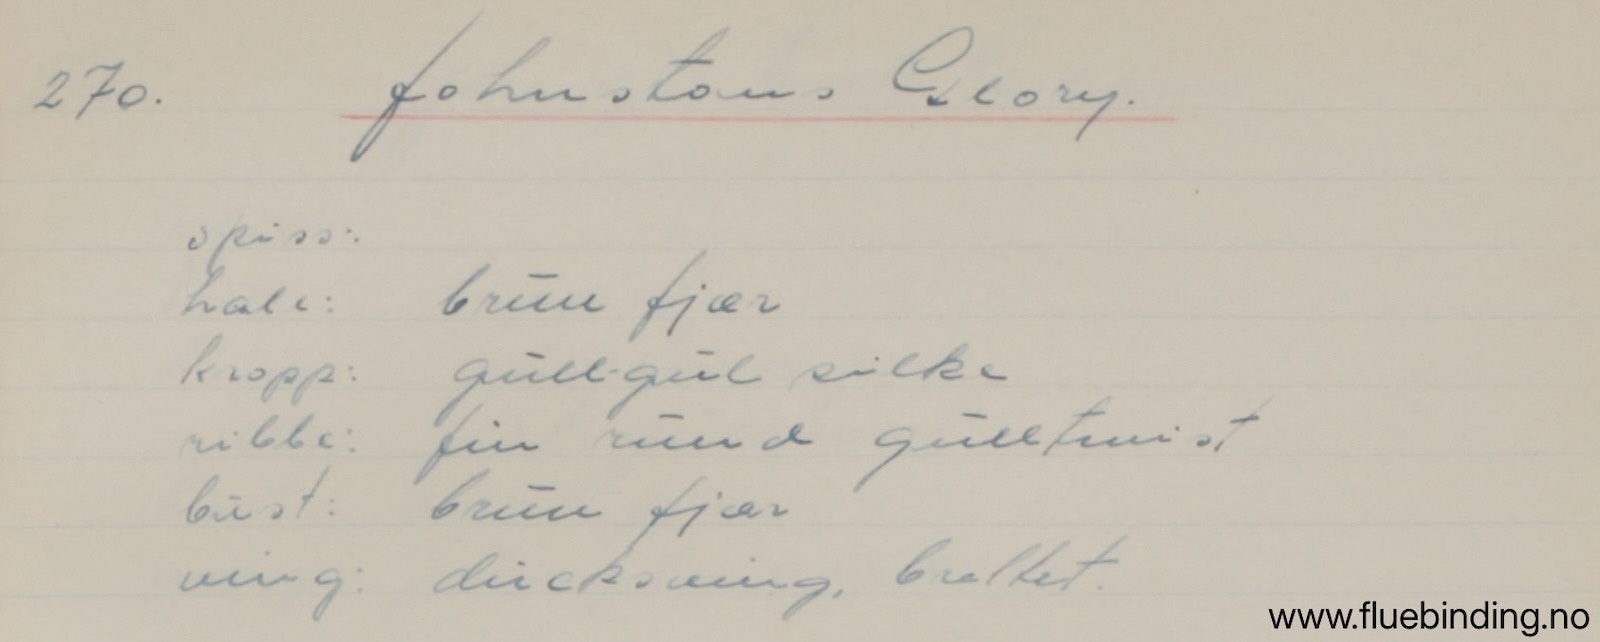 270. Johnstons Glory.
spiss:
hale: brun fjær
kropp: gull-gul silke
ribbe: fin rund gulltwist
bust: brun fjær
ving: duckswing,
www.fluebinding.no